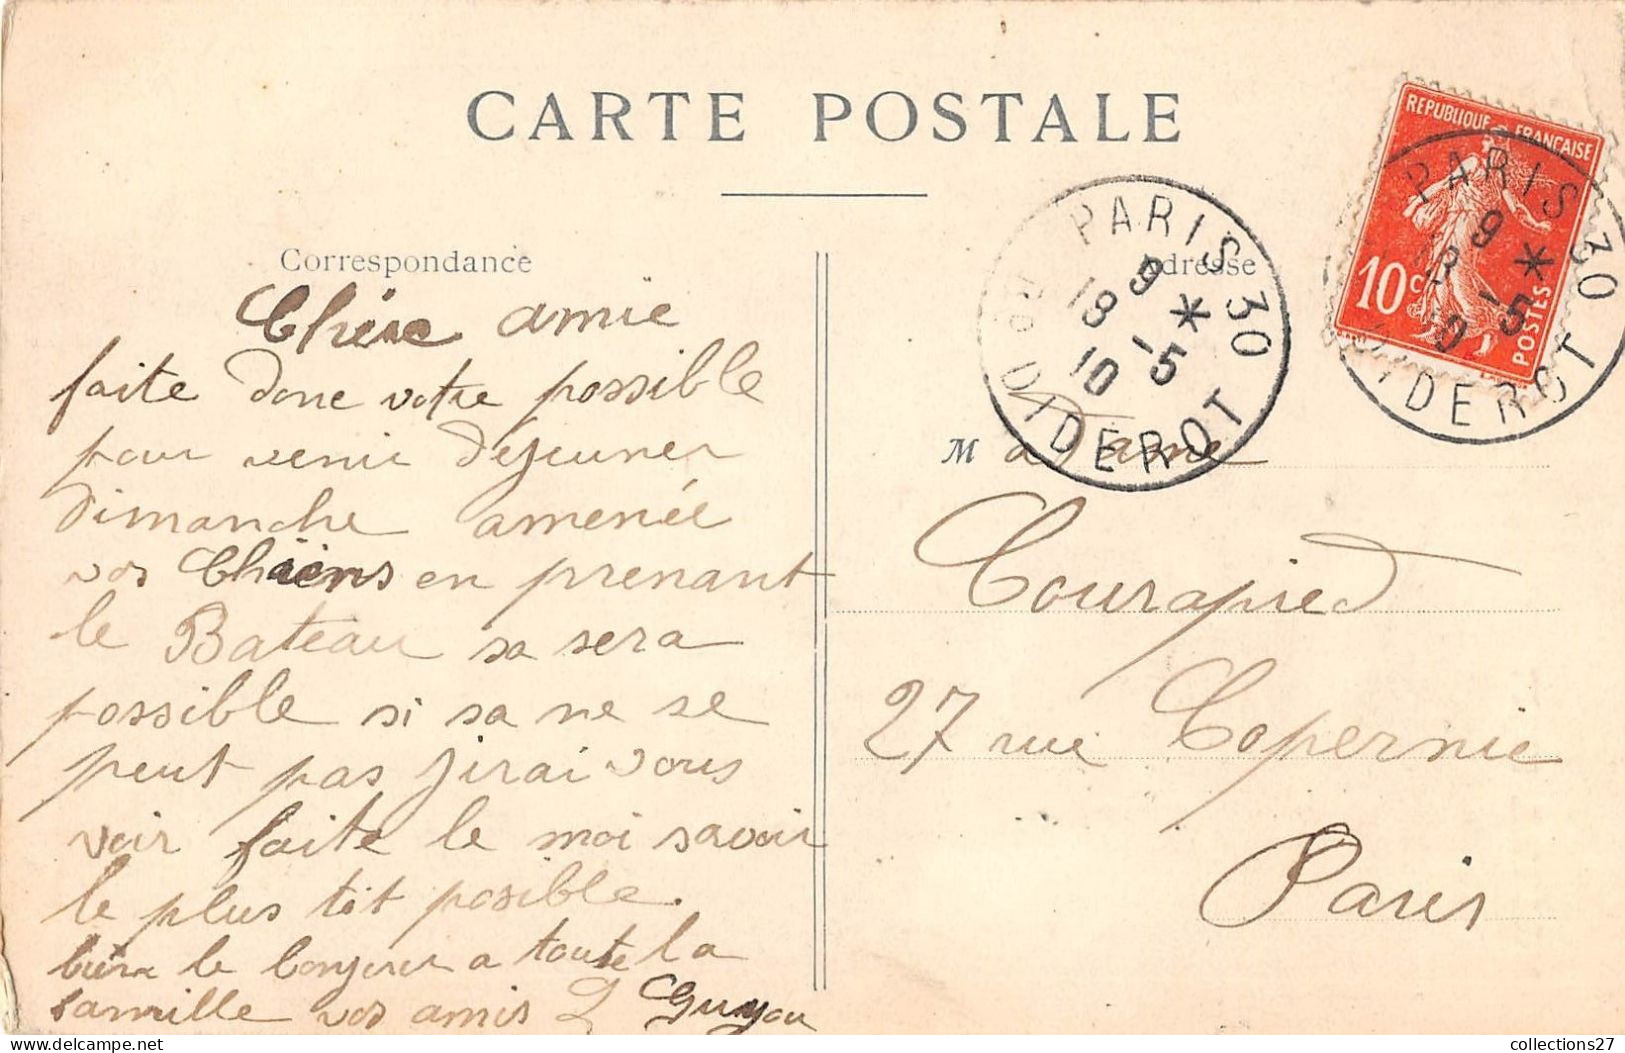 CARTE POSTALE
Correspondance
Chère amie
faite donc votre possible
pour venir dejeuner
dimanche amenée
vos Chiens en prenant
le Bateau sa sera
possible si sa ne se
peut pas jirai vous
voir faite le moi savoir
le plus tôt posible.
bien le bonjour a toute la
famille vos amis L Guyou
Adresse
Madame
Courapied
27 rue Copernic
Paris
REPUBLIQUE FRANÇAISE
10c
POSTES
PARIS 30
9 *
18 - 5
10
R. DIDEROT
PARIS 30
9 *
18 - 5
10
DIDEROT
collections27